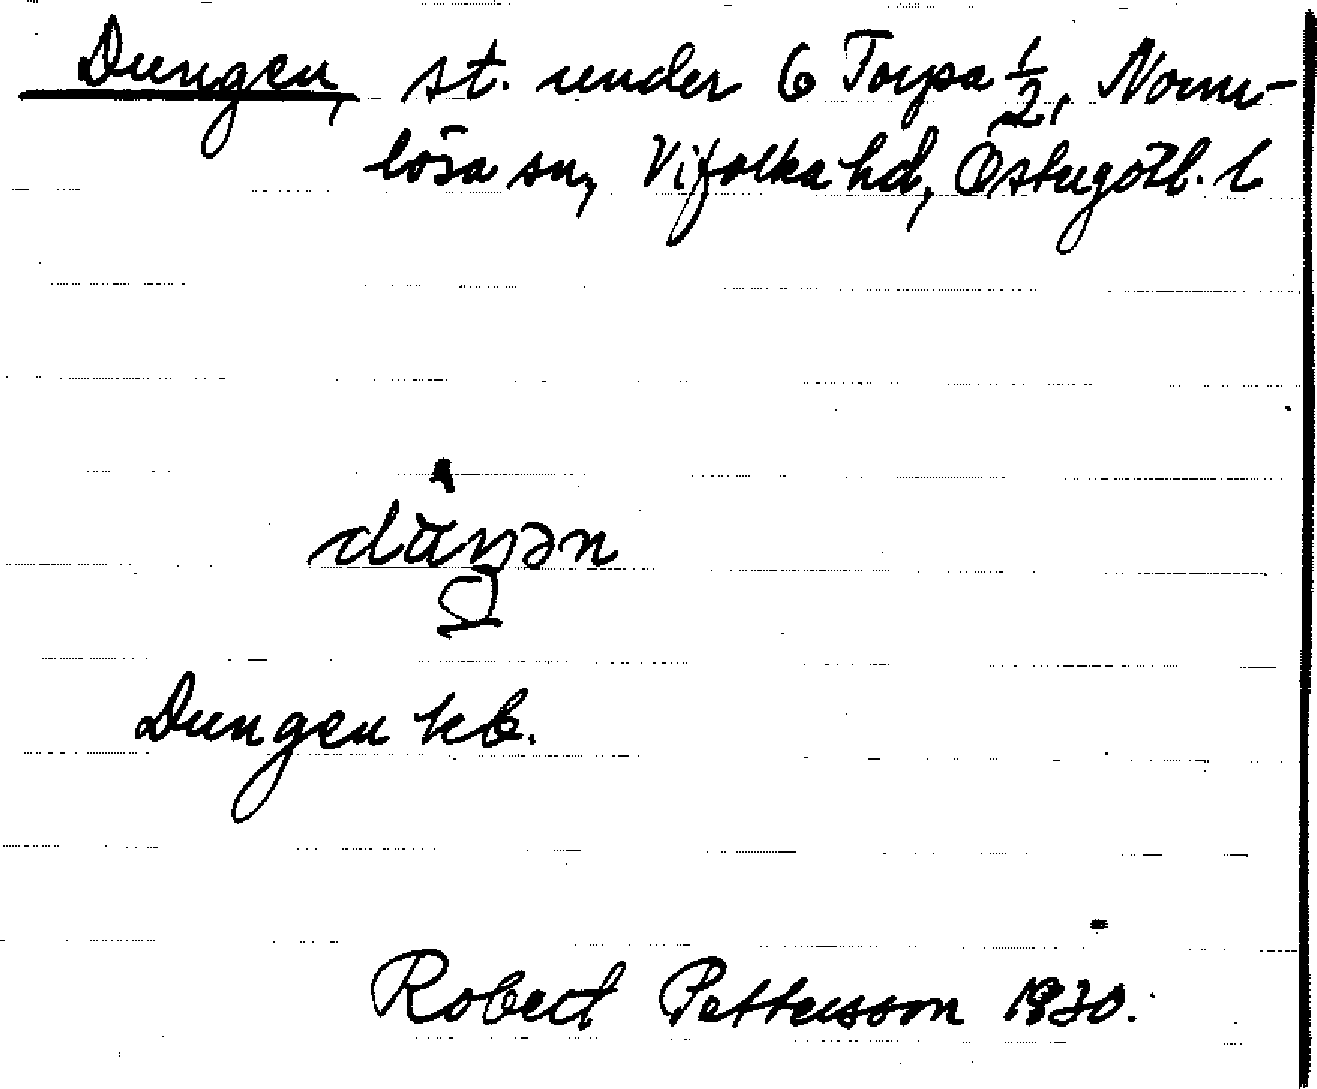 Dungen, st. under 6 Torpa 1/2, Norm-
lösa sn, Vifolka hd, Östergötl. l
duŋən
Dungen kb.
Robert Pettersson 1930.